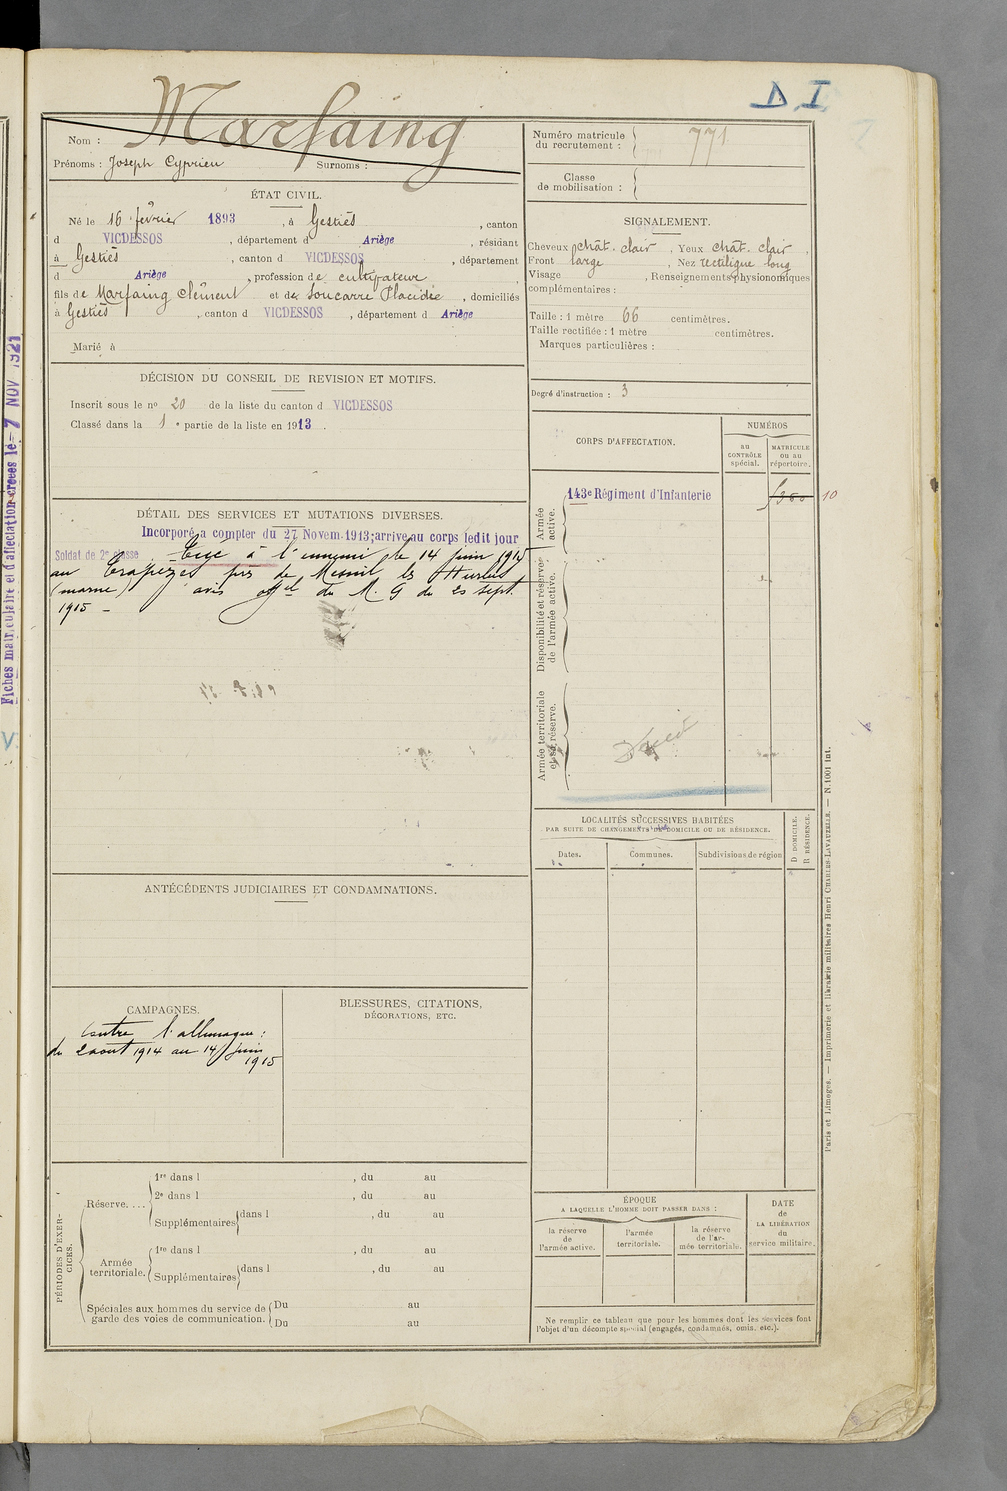 D I
Marfaing
Nom :
Prénoms : Joseph Cyprien Surnoms :
Numéro matricule
du recrutement : 771
Classe
de mobilisation :
ÉTAT CIVIL.
Né le 16 février 1893, à Gestiès, canton
d VICDESSOS, département d Ariège, résidant
à Gestiès, canton d VICDESSOS, département
d Ariège, profession de cultivateur
fils de Marfaing Clément et de Soucarre Placidie, domiciliés
à Gestiès, canton d VICDESSOS, département d Ariège
Marié à
SIGNALEMENT.
Cheveux chât. clair. Yeux chât. clair,
Front large, Nez rectiligne long
Visage, Renseignements physionomiques
complémentaires :
Taille : 1 mètre 66 centimètres.
Taille rectifiée : 1 mètre centimètres.
Marques particulières :
Degré d'instruction : 3
DÉCISION DU CONSEIL DE REVISION ET MOTIFS.
Inscrit sous le nº 20 de la liste du canton d VICDESSOS
Classé dans la 1 e partie de la liste en 1913.
CORPS D'AFFECTATION.
NUMÉROS
au
CONTRÔLE
spécial.
MATRICULE
ou au
répertoire.
Armée
active.
143e Régiment d'Infanterie
10
Disponibilité et réserve
de l'armée active.
Armée territoriale
et sa réserve.
Décédé
DÉTAIL DES SERVICES ET MUTATIONS DIVERSES.
Incorporé a compter du 27 Novem. 1913; arrive au corps ledit jour
Soldat de 2e classe. Tué à l'ennemi le 14 juin 1915
au Trapèzes près de Mesnil les Hurlus
(marne) avis offel du M. G du 20 sept.
1915 -
LOCALITÉS SUCCESSIVES HABITÉES
PAR SUITE DE CHANGEMENTS DE DOMICILE OU DE RÉSIDENCE.
Dates.
Communes.
Subdivisions de région
D DOMICILE.
R RÉSIDENCE.
ANTÉCÉDENTS JUDICIAIRES ET CONDAMNATIONS.
CAMPAGNES.
Contre l'allemagne :
du 2 aout 1914 au 14 juin
1915
BLESSURES, CITATIONS,
DÉCORATIONS, ETC.
PÉRIODES D'EXER-
CICES.
Réserve. ...
1re dans l , du au
2e dans l , du au
Supplémentaires dans l , du au
Armée
territoriale.
1re dans l , du au
Supplémentaires dans l , du au
Spéciales aux hommes du service de
garde des voies de communication.
Du au
Du au
ÉPOQUE
A LAQUELLE L'HOMME DOIT PASSER DANS :
la réserve
de
l'armée active.
l'armée
territoriale.
la réserve
de l'ar-
mée territoriale.
DATE
de
LA LIBÉRATION
du
service militaire.
Ne remplir ce tableau que pour les hommes dont les services font
l'objet d'un décompte spécial (engagés, condamnés, omis, etc.).
Paris et Limoges. — Imprimerie et librairie militaires Henri CHARLES-LAVAUZELLE. — N. 1001 int.
Fiches matriculaire et d'affectation créées le 7 NOV 1921
V